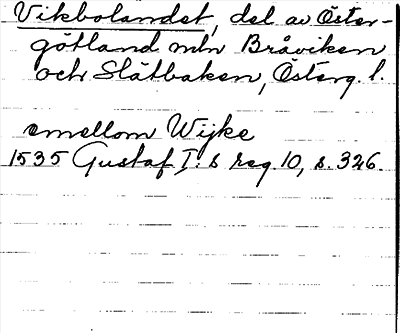 Vikbolandet, del av Öster-
götland mln Bråviken
och Slätbaken, Österg. l.
emellom Wijke
1535 Gustaf I:s reg. 10, s. 326.